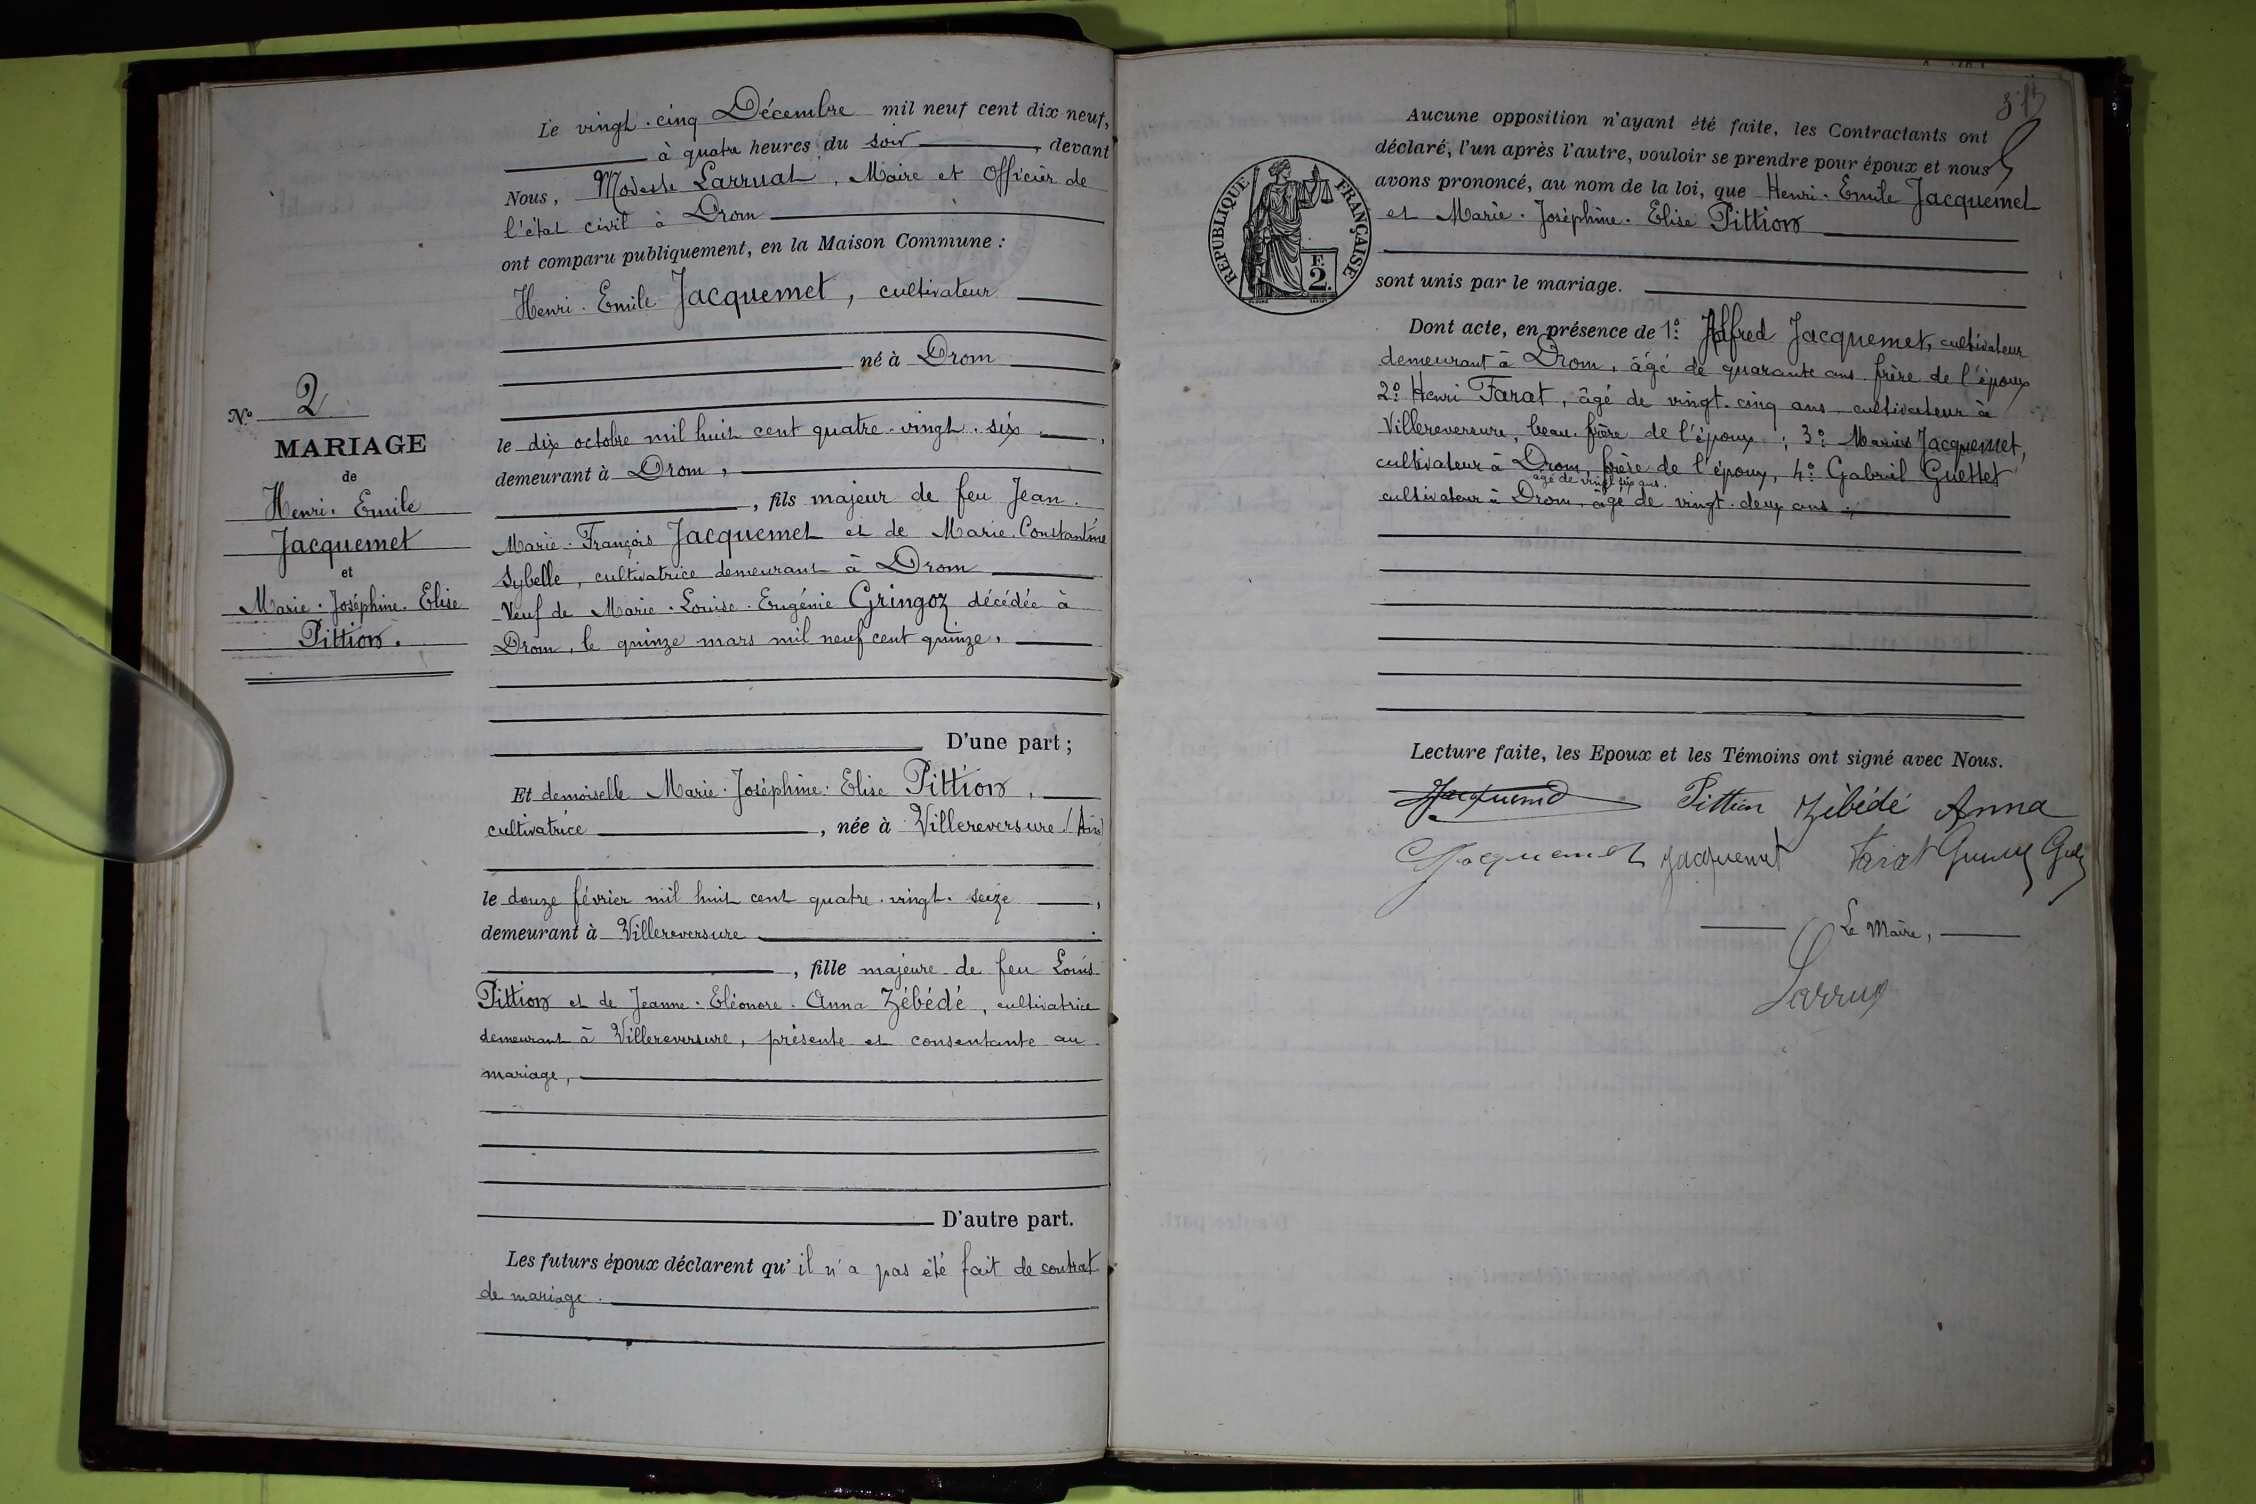 Le vingt-cinq Décembre mil neuf cent dix neuf,
à quatre heures du soir, devant
Nous, Modeste Larruat, Maire et Officier de
l'état civil à Drom
ont comparu publiquement, en la Maison Commune :
Henri-Emile Jacquemet, cultivateur
né à Drom
le dix octobre mil huit cent quatre-vingt-six,
demeurant à Drom,
, fils majeur de feu Jean-
Marie-François Jacquemet et de Marie-Constantine
Sybelle, cultivatrice demeurant à Drom
Veuf de Marie-Louise-Eugénie Gringoz décédée à
Drom, le quinze mars mil neuf cent quinze,
D'une part ;
Et demoiselle Marie-Joséphine-Elise Pittion,
cultivatrice, née à Villereversure (Ain)
le douze février mil huit cent quatre-vingt-seize,
demeurant à Villereversure
, fille majeure de feu Louis
Pittion et de Jeanne-Eléonore-Anna Zébédé, cultivatrice
demeurant à Villereversure, présente et consentante au
mariage,
D'autre part.
Les futurs époux déclarent qu'il n'a pas été fait de contrat
de mariage.
No 2
MARIAGE
de
Henri-Emile
Jacquemet
et
Marie-Joséphine-Elise
Pittion.
Aucune opposition n'ayant été faite, les Contractants ont
déclaré, l'un après l'autre, vouloir se prendre pour époux et nous
avons prononcé, au nom de la loi, que Henri-Emile Jacquemet
et Marie-Joséphine-Elise Pittion
sont unis par le mariage.
RÉPUBLIQUE FRANÇAISE
F.
2.
Dont acte, en présence de 1o: Alfred Jacquemet, cultivateur
demeurant à Drom, âgé de quarante ans frère de l'époux
2o: Henri Farat, âgé de vingt-cinq ans cultivateur à
Villereversure, beau-frère de l'époux ; 3o: Marius Jacquemet,
cultivateur à Drom, frère de l'époux, 4o: Gabriel Guettet
âgé de vingt six ans.
cultivateur à Drom, âgé de vingt-deux ans ;
Lecture faite, les Epoux et les Témoins ont signé avec Nous.
Jacquemet Pittion Zébédé Anna
Jacquemet Jacquemet Farat
Le Maire,